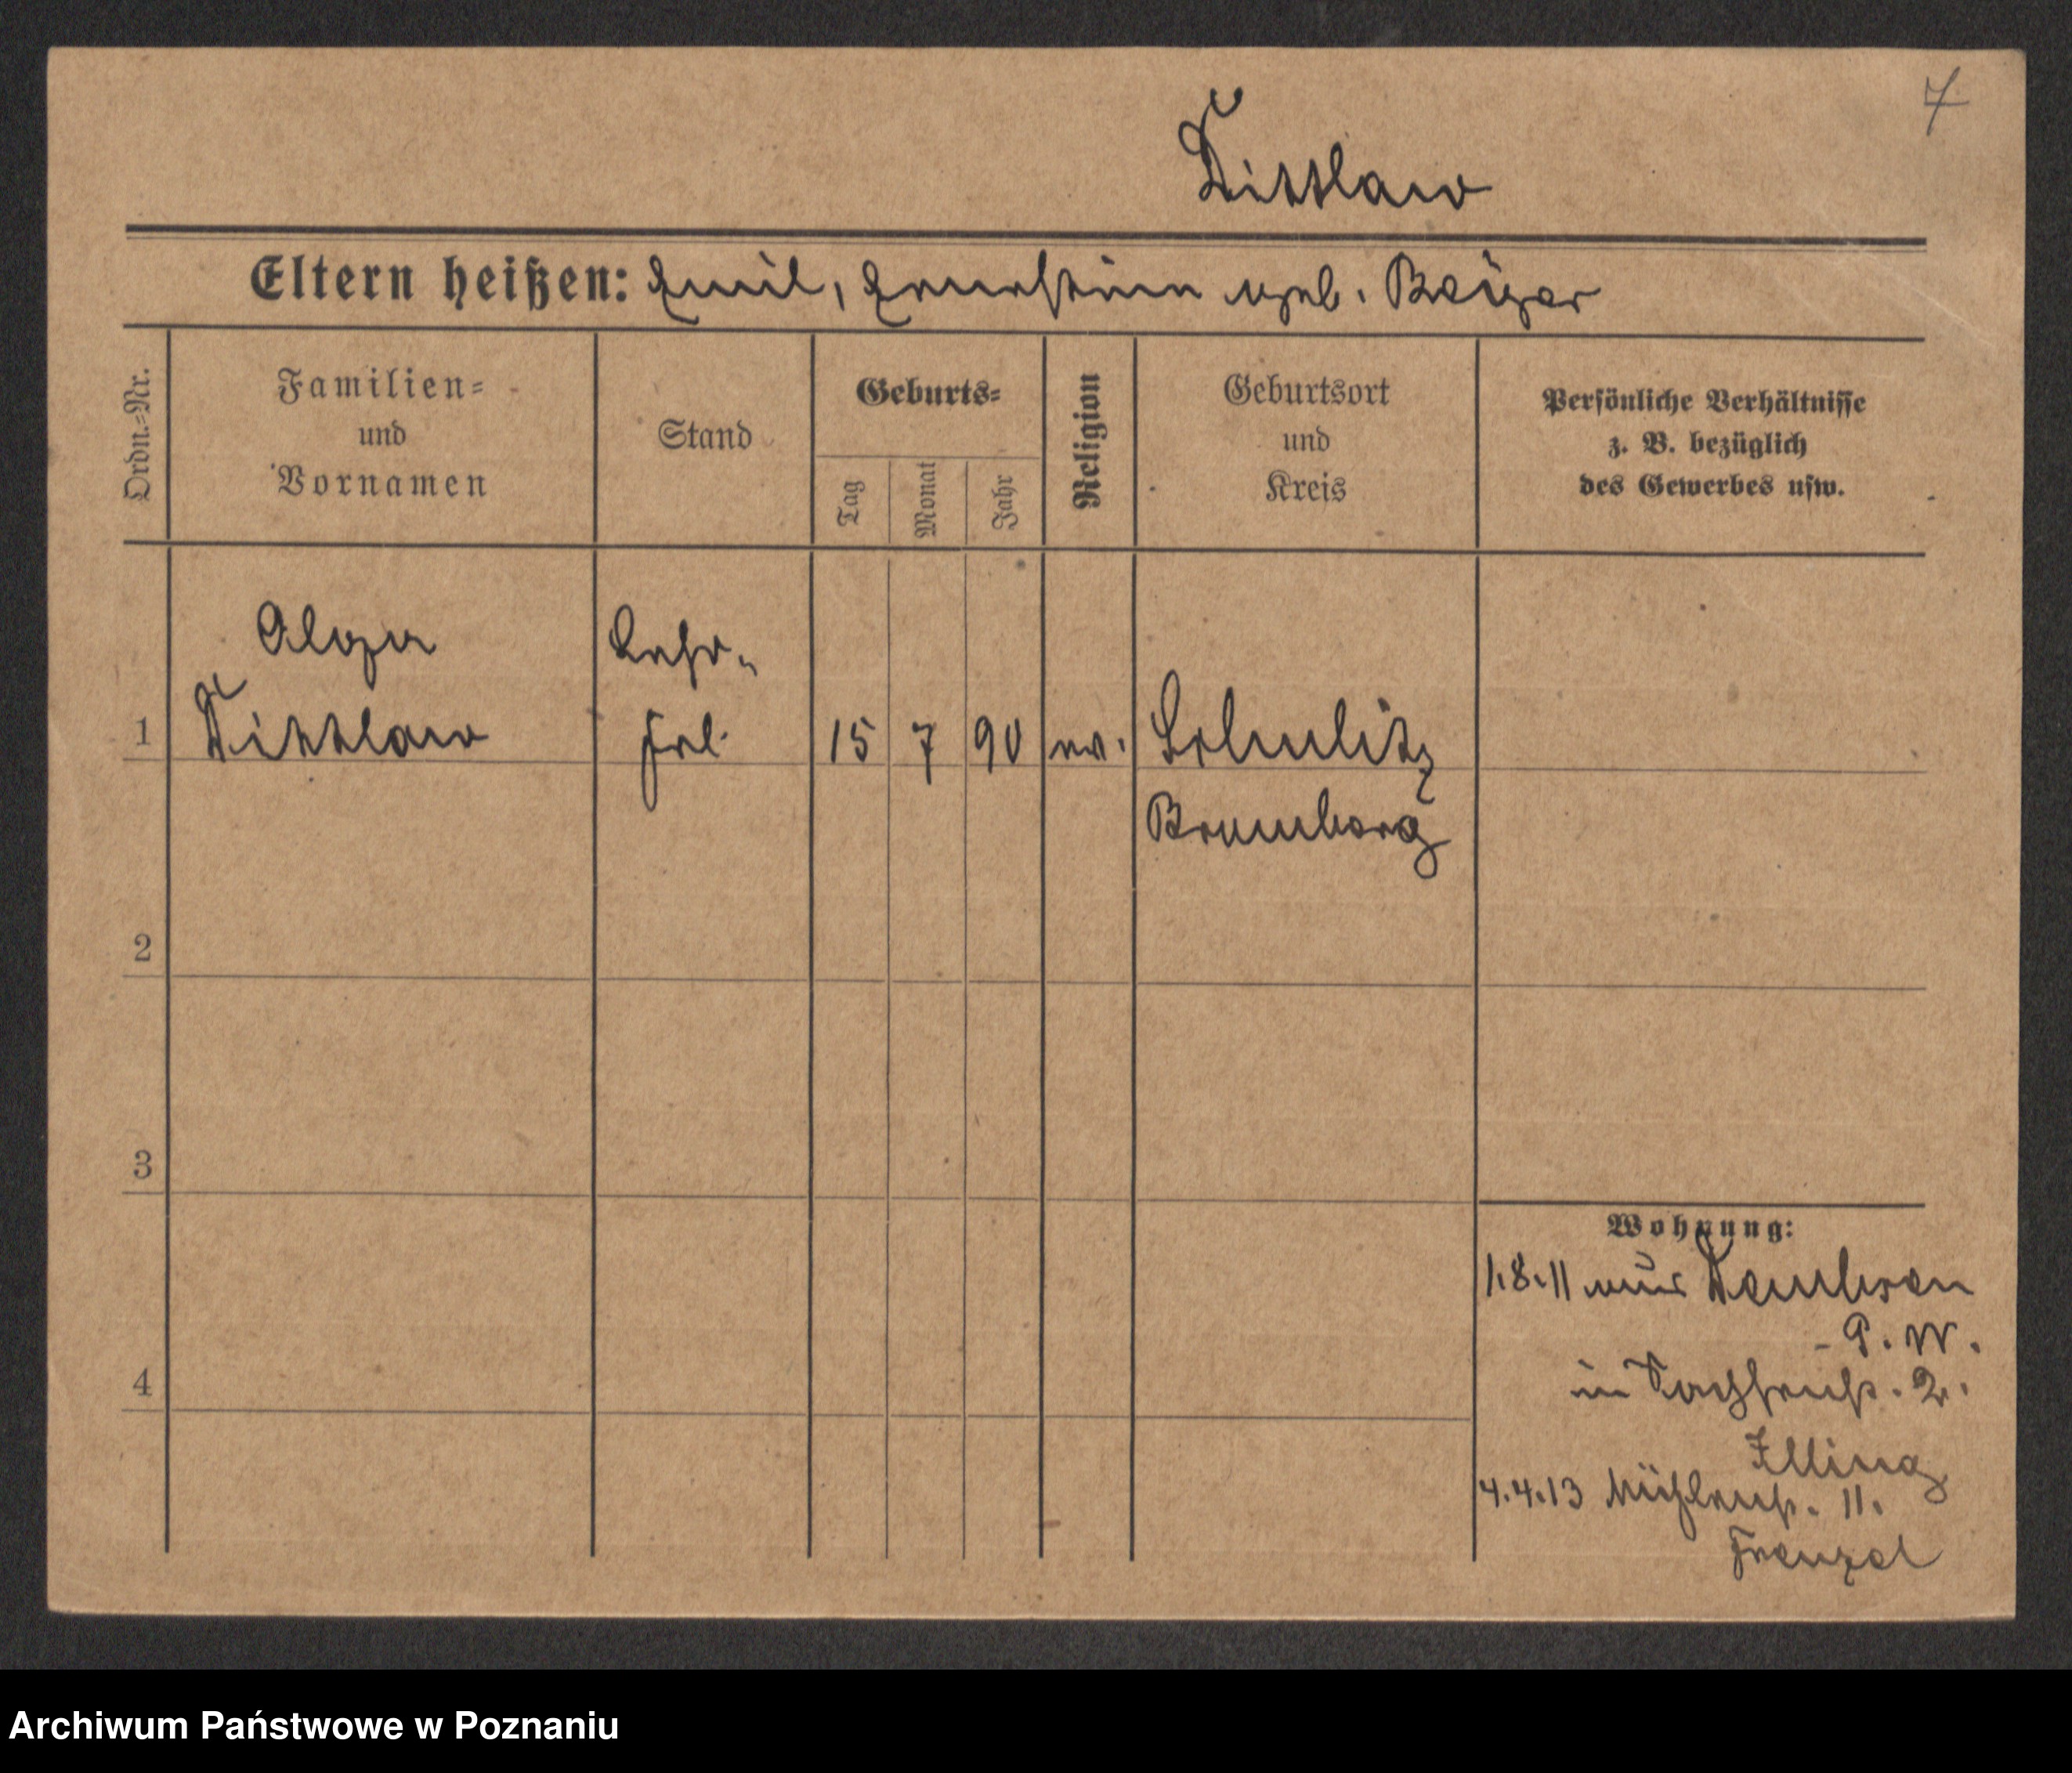 7
Dittlaw
Eltern heißen: Emil, Ernestine geb. Beyer
Ordn.=Nr.
Familien=
und
Vornamen
Stand
Geburts=
Tag
Monat
Jahr
Religion
Geburtsort
und
Kreis
Persönliche Verhältnisse
z. B. bezüglich
des Gewerbes usw.
Olga
Dittlaw
Lehr-
frl.
1
15
7
90
ev.
Bromberg
2
3
4
Wohnung:
1.8.11 aus Dembsen
- P. W.
2.
Illing
4.4.13 Mühlenstr. 11.
Frenzel
Archiwum Państwowe w Poznaniu